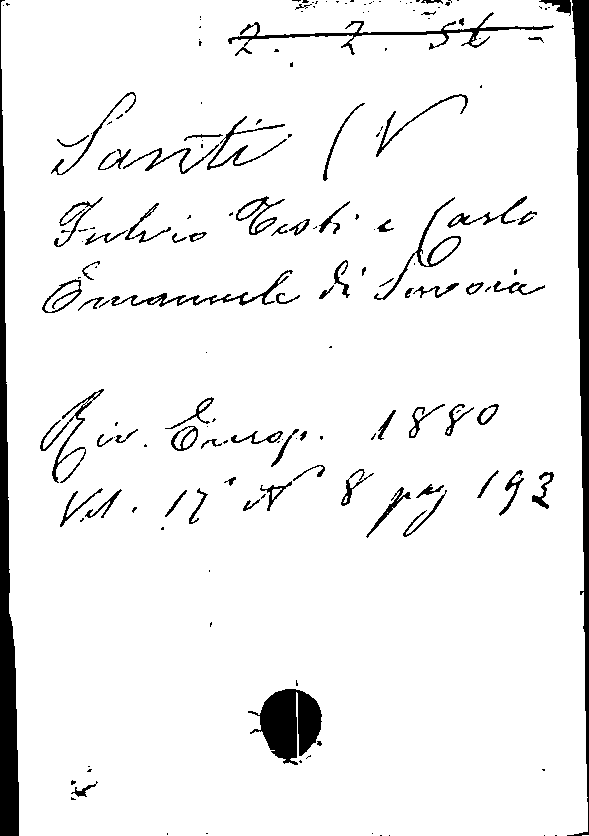 2. 2. 5
Santi (V
Fulvio Testi e Carlo
Emanuele di Savoia
Riv. Europ. 1880
Vol. 17° N° 8 pag 193